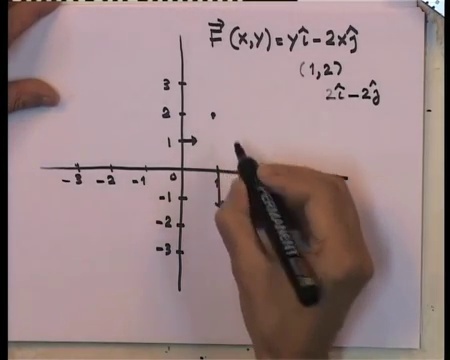 F⃗ (x,y) = yî − 2xĵ
(1,2)
2î − 2ĵ
3
2
1
−3 −2 −1 0 1
−1
−2
−3
PERMANENT